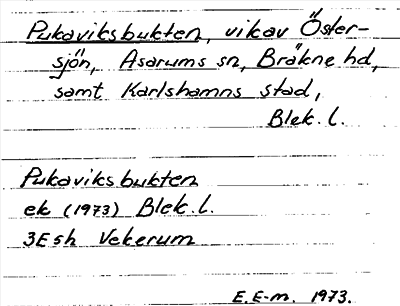 Pukaviksbukten, vik av Öster-
sjön, Asarums sn, Bräkne hd,
samt Karlshamns stad,
Blek. l.
Pukaviksbukten
ek (1973) Blek. l.
3E sh Vekerum
E. E-m. 1973.